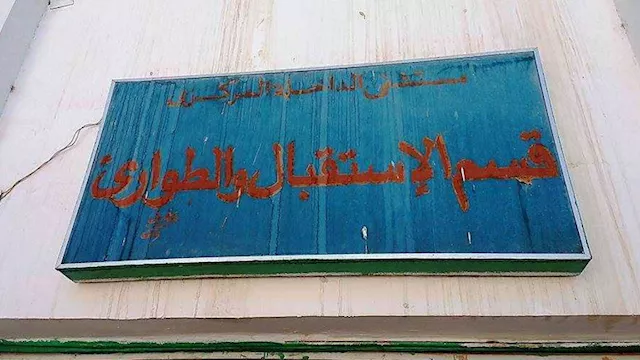 مستشفى الداخلة المركزى
قسم الإستقبال والطوارئ